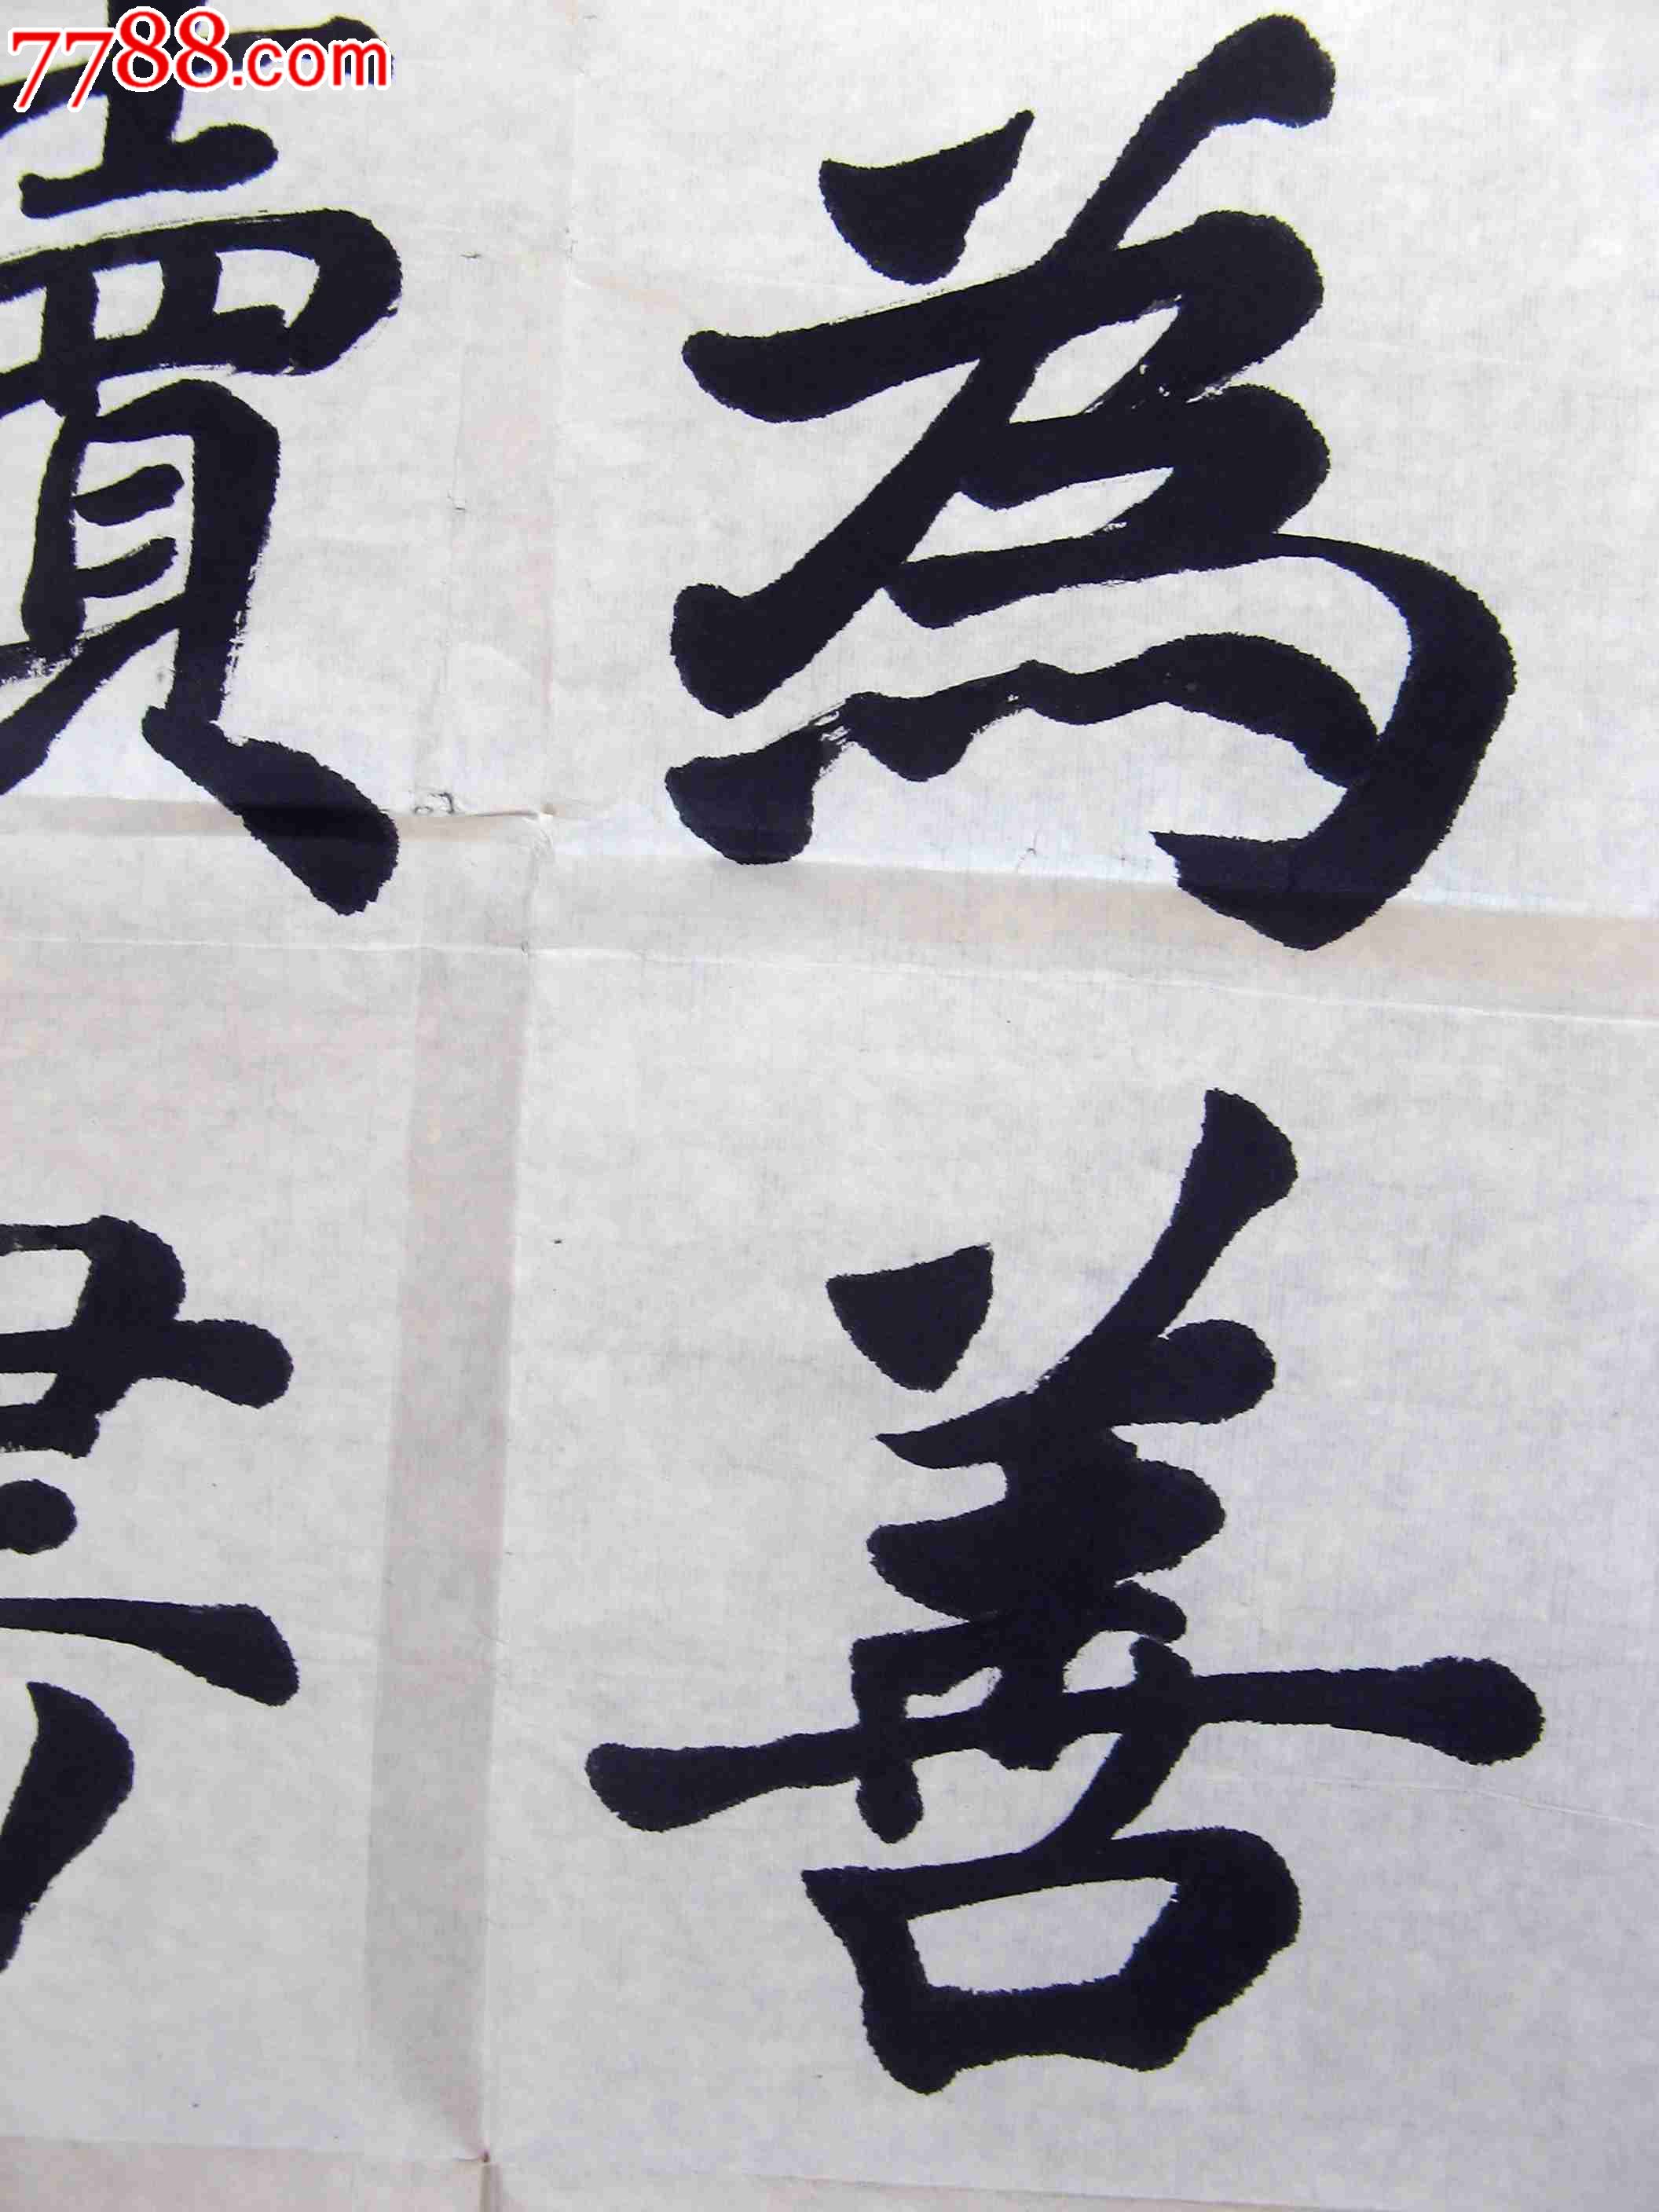 7788.com
為善
讀